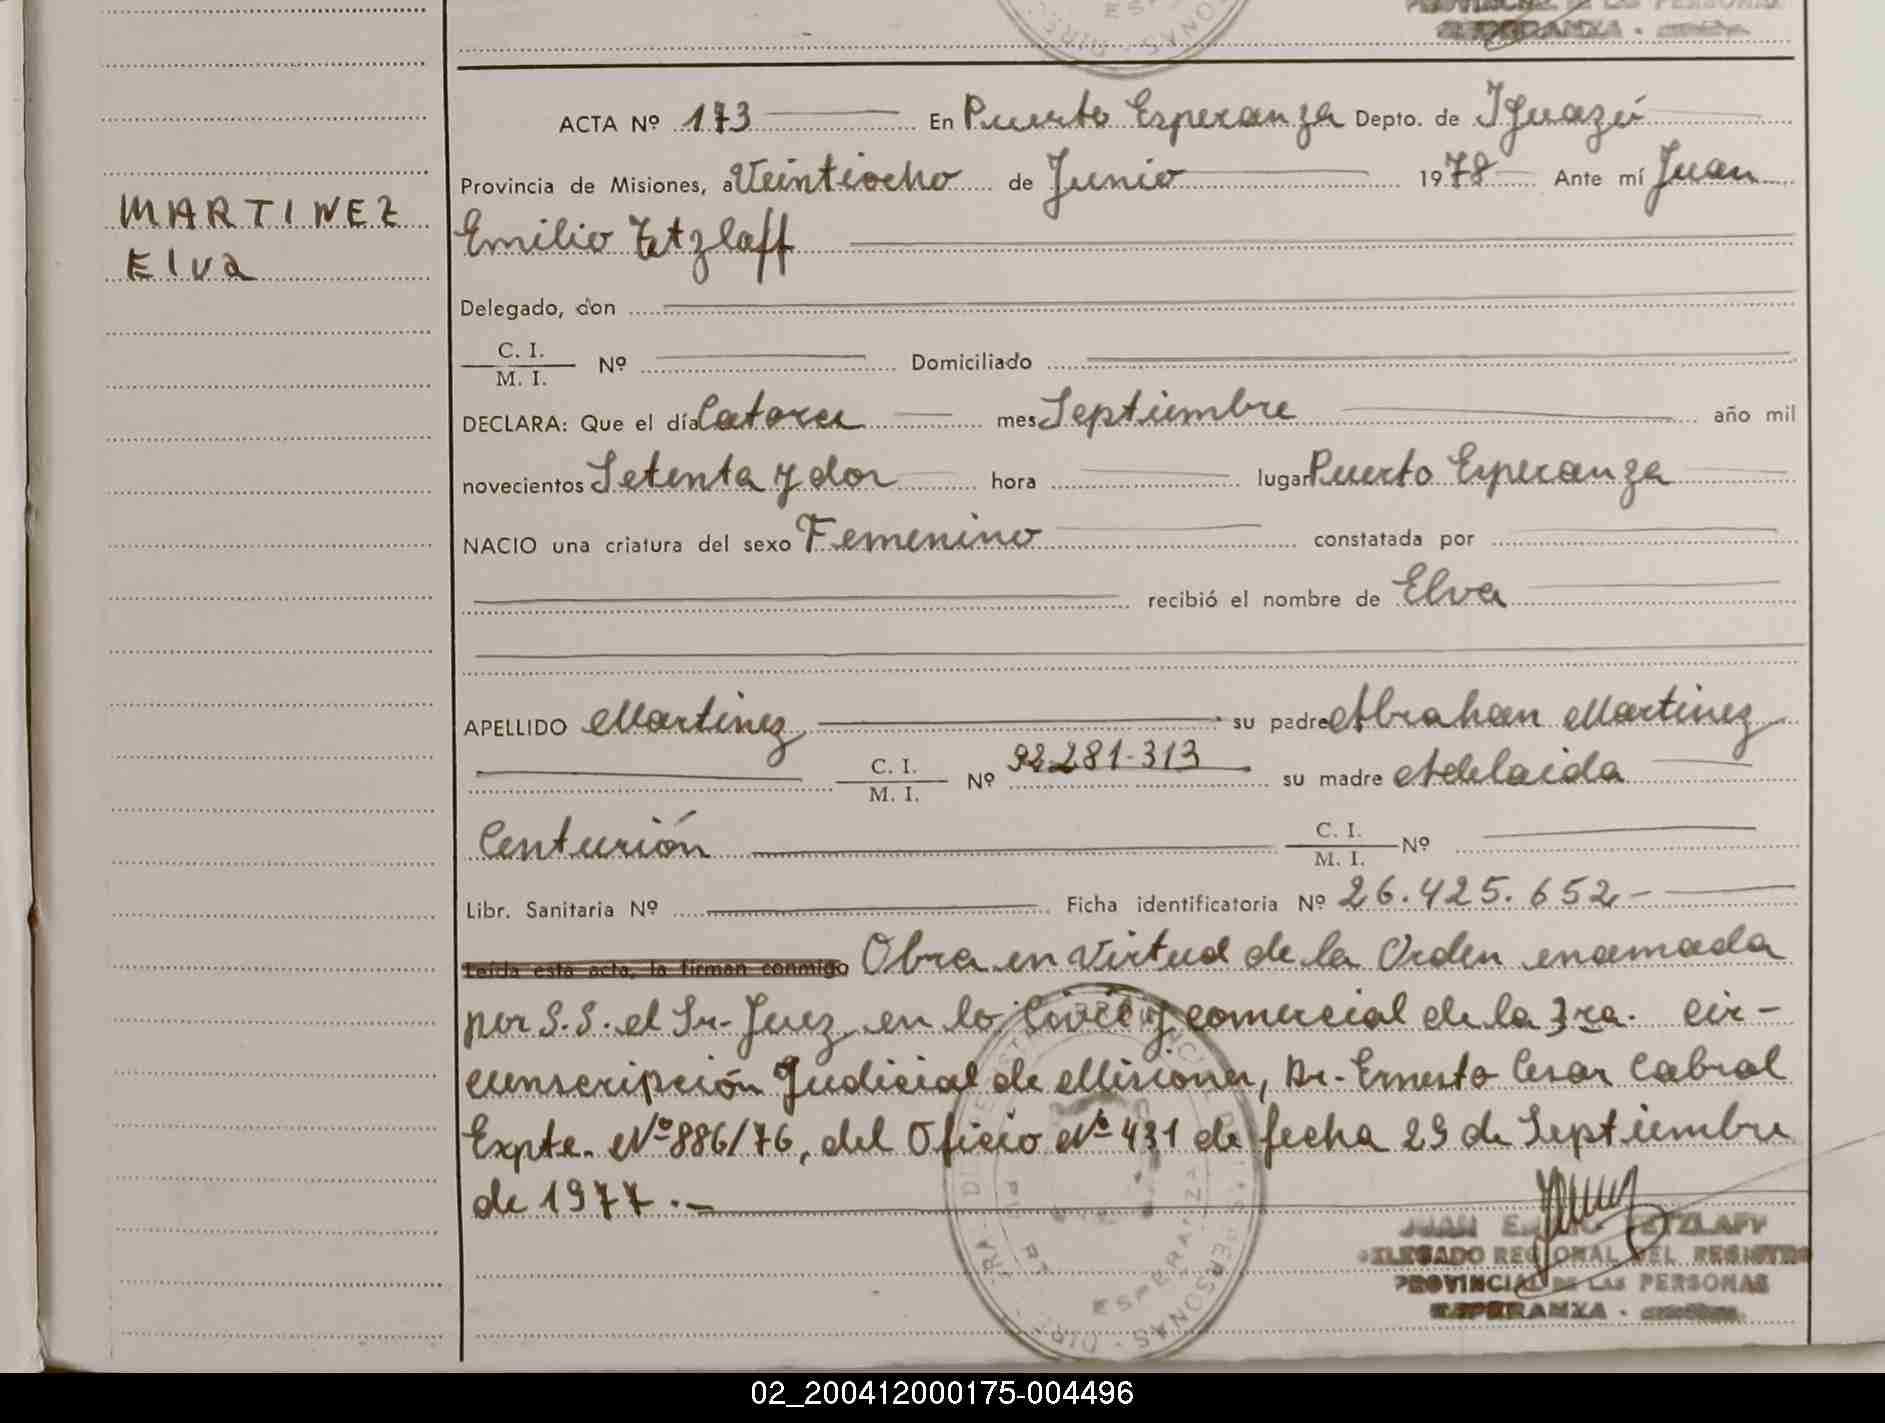 PROVINCIAL DE LAS PERSONAS
ESPERANZA -
MARTINEZ
Elva
ACTA Nº 173 En Puerto Esperanza Depto. de Iguazú
Provincia de Misiones, a Veintiocho de Junio 1978 Ante mí Juan
Emilio Tetzlaff
Delegado, don
C. I.
M. I. Nº Domiciliado
DECLARA: Que el día Catorce mes Septiembre año mil
novecientos Setenta y dos hora lugar Puerto Esperanza
NACIO una criatura del sexo Femenino constatada por
recibió el nombre de Elva
APELLIDO Martinez su padre Abrahan Martinez
C. I.
M. I. Nº 92.281-313 su madre Adelaida
Centurión C. I.
M. I. Nº
Libr. Sanitaria Nº Ficha identificatoria Nº 26.425.652-
Leída esta acta, la firman conmigo Obra en Virtud de la Orden enamada
por S.S. el Sr. Juez en lo Civil y comercial de la 3ra. cir-
cunscripción Judicial de Misiones, Dr. Ernesto Cesar Cabral
Expte. Nº 886/76, del Oficio Nº 431 de fecha 29 de Septiembre
de 1977.-
JUAN EMILIO TETZLAFF
DELEGADO REGIONAL DEL REGISTRO
PROVINCIAL DE LAS PERSONAS
ESPERANZA -
02_200412000175-004496